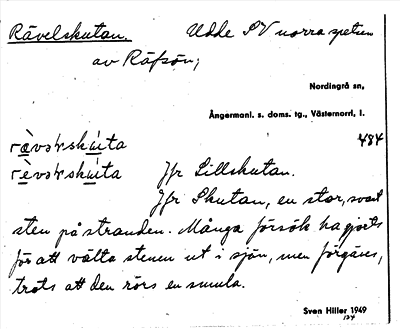 Rävelskutan. Udde SV norra spetsen
av Räfsön;
Nordingrå sn,
Ångermanl. s. doms. tg., Västernorrl. l.
484
Jfr Lillskutan.
Jfr Skutan, en stor, svart
sten på stranden. Många försök ha gjorts
för att välta stenen ut i sjön, men förgäves,
trots att den rörs en smula.
Sven Hiller 1949